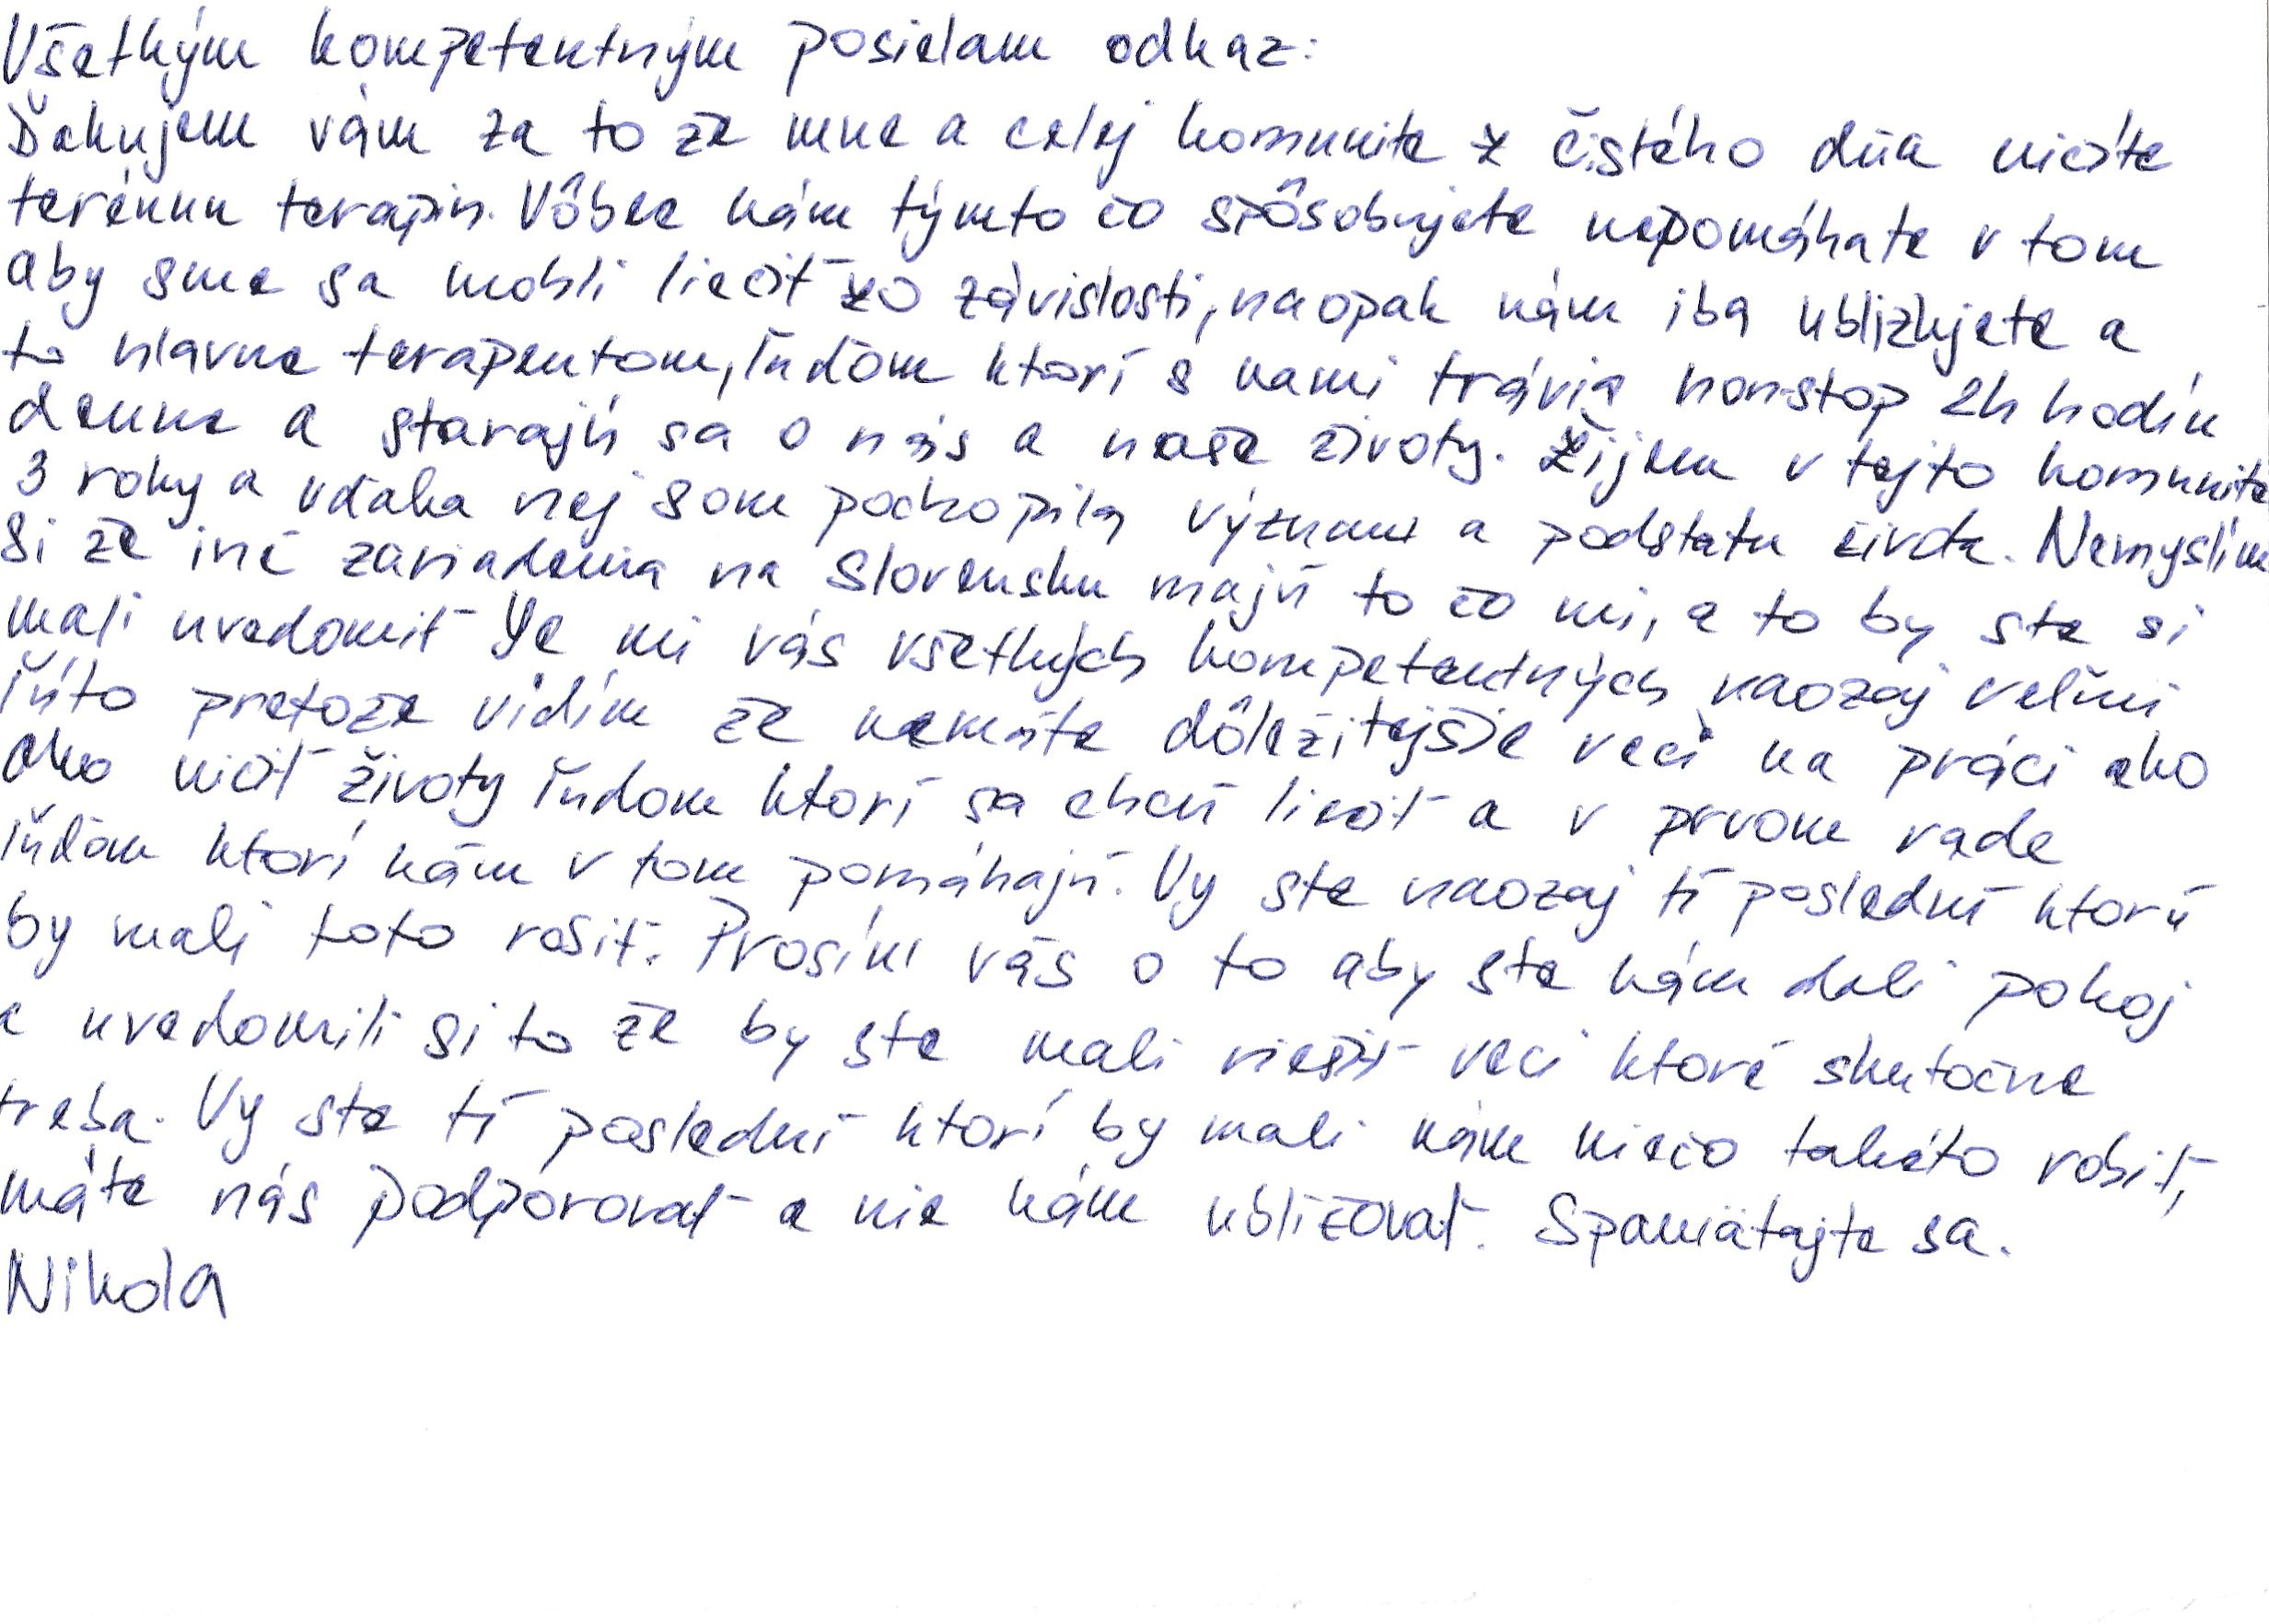 Všetkým kompetentným posielam odkaz:
Ďakujem vám za to že mne a celej komunite z čistého dňa ničíte
terénnu terapiu. Vôbec nám týmto čo spôsobujete nepomáhate v tom
aby sme sa mohli liečiť zo závislosti, naopak nám iba ubližujete a
to hlavne terapeutom, ľuďom ktorí s nami trávia nonstop 24 hodín
denne a starajú sa o nás a naše životy. Žijem v tejto komunite
3 roky a vďaka nej som pochopila význam a podstatu života. Nemyslím
si že iné zariadenia na Slovensku majú to čo mi, a to by ste si
mali uvedomiť Je mi vás všetkých kompetentných naozaj veľmi
ľúto pretože vidím že nemáte dôležitejšie veci na práci ako
ako ničiť životy ľuďom ktorí sa chcú liečiť a v prvom rade
ľuďom ktorí nám v tom pomáhajú. Vy ste naozaj tí poslední ktorí
by mali toto rošiť. Prosím vás o to aby ste nám dali pokoj
a uvedomili si to že by ste mali riešiť veci ktoré skutočne
treba. Vy ste tí poslední ktorí by mali nám niečo takéto robiť,
máte nás podporovať a nie nám ubližovať. Spamätajte sa.
Nikola